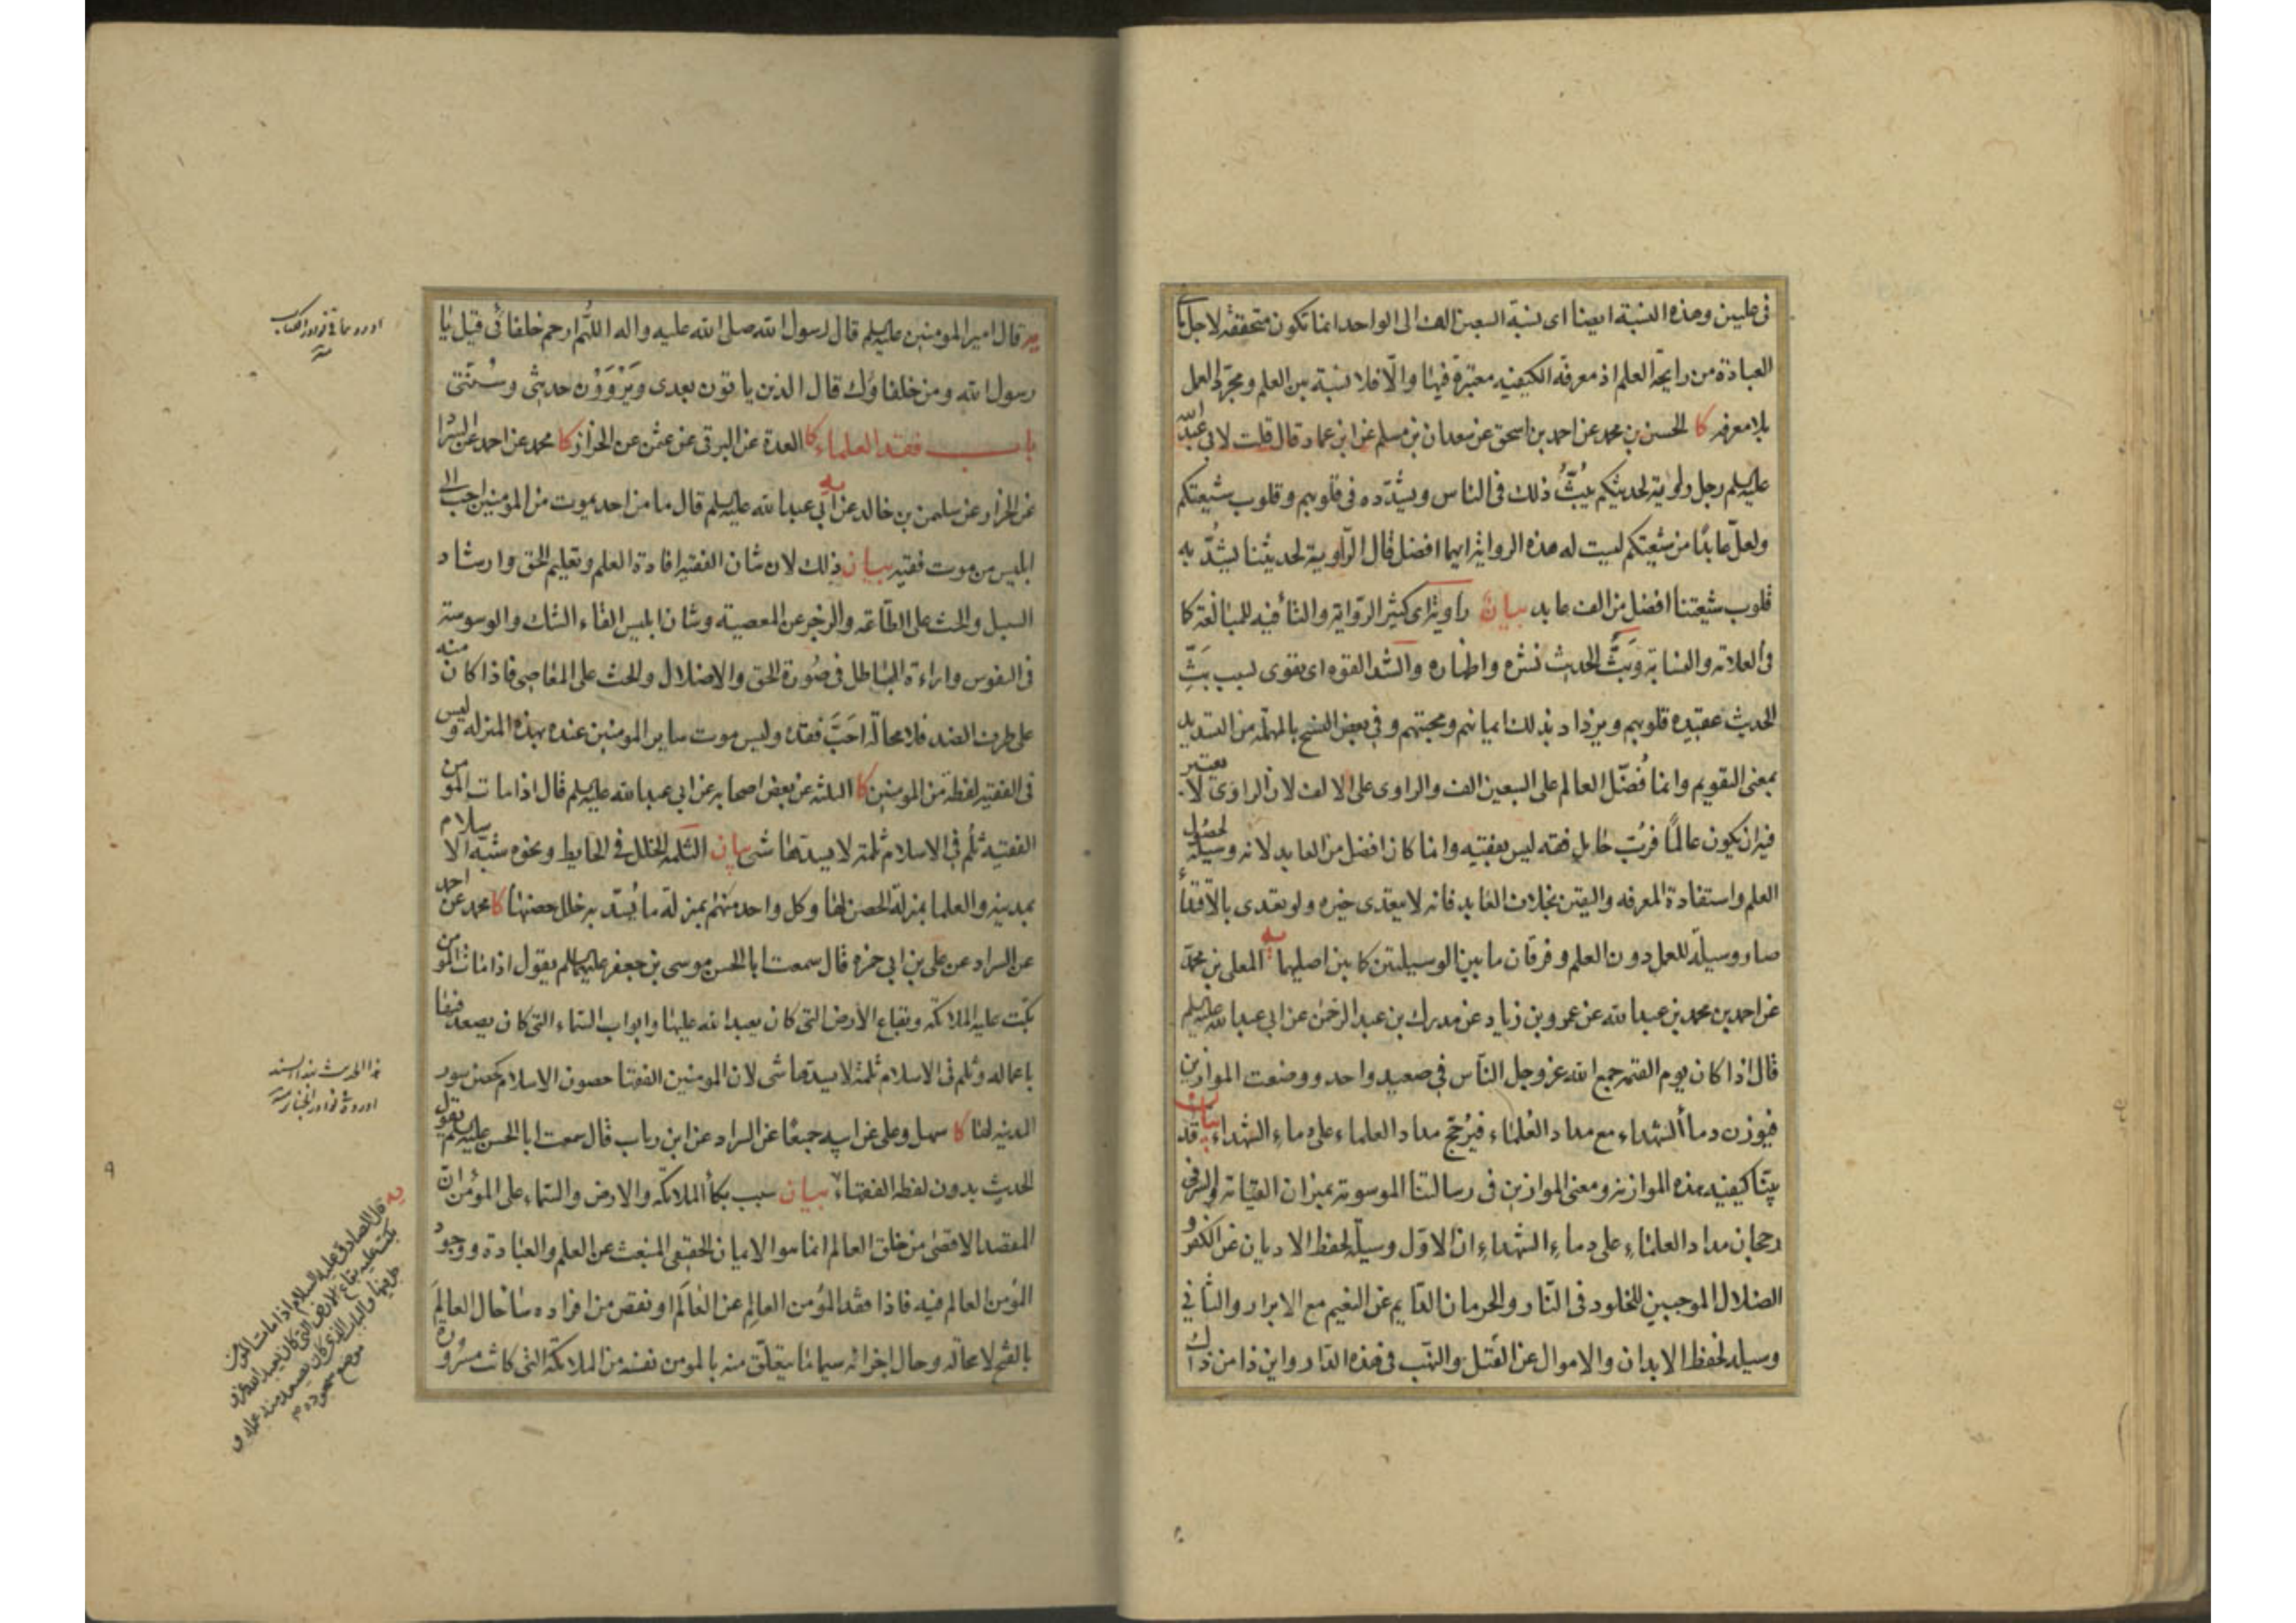 فی علیین وهذه النسبة ایضا ای نسبة السبعین الف الی الواحد انما تکون متحققة لاجل ما
العبادة من رایحة العلم اذ معرفة الکیفیة معتبرة فیها والّا فلا نسبة بین العلم ومجرّد العمل
بلا معرفه کا الحسین بن محمد عن احمد بن اسحق عن سعدان بن مسلم عن ابن عمار قال قلت لابی عبد الله
علیه السلم رجل راویة لحدیثکم یَبُثُّ ذلک فی الناس ویشدّده فی قلوبهم وقلوب شیعتکم
ولعلّ عابدًا من شیعتکم لیست له هذه الروایة ایهما افضل قال الرّاویة لحدیثنا یشُدُّ به
قلوب شیعتنا افضل من الف عابد بیان راویة ای کثیر الرّوایة والتأ فیه للمبالغة کا
فی العلامة والنسابة وبَثُّ الحدیث نشره واظهاره والشد القوه ای یقوی بسبب بَثِّ
الحدیث عقیده قلوبهم ویزداد بذلک ایمانهم ومحبتهم وفی بعض النسخ بالمهمله من التسدید
بمعنی التقویم وانما فُضّل العالم علی السبعین الف والراوی علی الالف لان الراوی لا یعتبر
فیه ان یکون عالمًا فربّ حامل فقه لیس بفقیه وانما کان افضل من العابد لانه وسیلة لحصول
العلم واستفادة المعرفه والیقین بخلاف العابد فانه لا یتعدی خیره ولو تعدی بالاقتدأ
صار وسیلة للعمل دون العلم وفرقان ما بین الوسیلتین کما بین اصلیهما یه المعلی بن محمد
عن احمد بن محمد بن عبد الله عن عمرو بن زیاد عن مدرک بن عبد الرحمن عن ابی عبد الله علیه السلم
قال اذا کان یوم القیمه جمع الله عز وجل النّاس فی صعید واحد ووضعت الموازین
فیوزن دماأ الشهداء مع مداد العُلماء فیُرَجّح مداد العلماء علی دماءِ الشهداء بیان قد
بیّنا کیفیة هذه الموازنه ومعنی الموازین فی رسالتنا الموسومة بمیزان القیامة والسرّ فی
رجحان مداد العلماءِ علی دماءِ الشهداءِ ان الاوّل وسیلة لحفظ الادیان عن الکفر و
الضلال الموجبین للخلود فی النّار والحرمان الدّایم عن النعیم مع الابرار والثّانی
وسیلة لحفظ الابدان والاموال عن القتل والنهب فی هذه الدّار واین ذا من ذاک
یه قال امیر المومنین علیه السلم قال رسول الله صلی الله علیه واله اللّهُم ارحم خلفائی قیل یا
رسول الله ومن خلفاؤک قال الذین یاتون بعدی ویَرْوَوْن حدیثی وسُنّتی
باب فقد العلماء کا العدة عن البرقی عن عثمن عن الخزاز کا محمد عن احمد عن السرّا
عن الخزاز عن سلیمن بن خالد یه عن ابی عبد الله علیه السلم قال ما من احد یموت من المومنین احب الی
ابلیس من موت فقیه بیان ذلک لان شان الفقیه افادة العلم وتعلیم الحق وارشاد
السبل والحث علی الطّاعة والزجر عن المعصیة وشان ابلیس القاء الشک والوسوسة
فی النفوس واراءة الباطل فی صُورة الحق والاضلال والحث علی المعاصی فاذا کان منه
علی طرف الضد فلا محالة احَبَّ فقده ولیس موت سایر المومنین عنده بهذه المنزله ولیس
فی الفقیه لفظة من المومنین کا الثلثه عن بعض اصحابه عن ابی عبد الله علیه السلم قال اذا مات المومن
الفقیه ثلُم فی الاسلام ثلمة لا یسدّها شی بیان الثلمة الخلل فی الحایط ونحوه شبّه الاسلام
بمدینه والعلما بمنزلة الحصن لها وکل واحد منهم بمنزلة ما یُسَدّ به خلل حصنها کا محمد عن احمد
عن السراد عن علی بن ابی حمزه قال سمعت ابا الحسن موسی بن جعفر علیهما السلم یقول اذا مات المومن
بکت علیه الملائکة وبقاع الأرض التی کان یعبد الله علیها وابواب السّماء التی کان یصعد فیها
باعماله وثلم فی الاسلام ثلمة لا یسدّها شی لان المومنین الفقها حصون الاسلام کحصن سور
المدینه لها کا سهل وعلی عن ابیه جمیعًا عن السراد عن ابن رباب قال سمعت ابا الحسن علیه السلم یقول
الحدیث بدون لفظه الفقهاء بیان سبب بکأ الملائکة والارض والسّماء علی المؤمن انّ
المقصد الاقصی من خلق العالم انما هو الایمان الحقیقی المنبعث عن العلم والعبادة ووجود
المؤمن العالم فیه فاذا فقد المؤمن العالِم عن العَالَم او نقص من افراده ساٰ حال العالَم
بالقیم لا محالة وحال اجزائه سیما ما یتعلّق منه بالمومن نفسه من الملائکة التی کانت مسرورة
اورد هما فی نوادر الکتاب
هذا الحدیث بهذا السند
اورده فی نوادر الجنایز
یه قال الصادق علیه السلام اذا مات المؤمن
بکت علیه بقاع الارض التی کان یعبد الله عز و
جل فیها والباب الذی کان یصعد منه عمله و
موضع سجوده